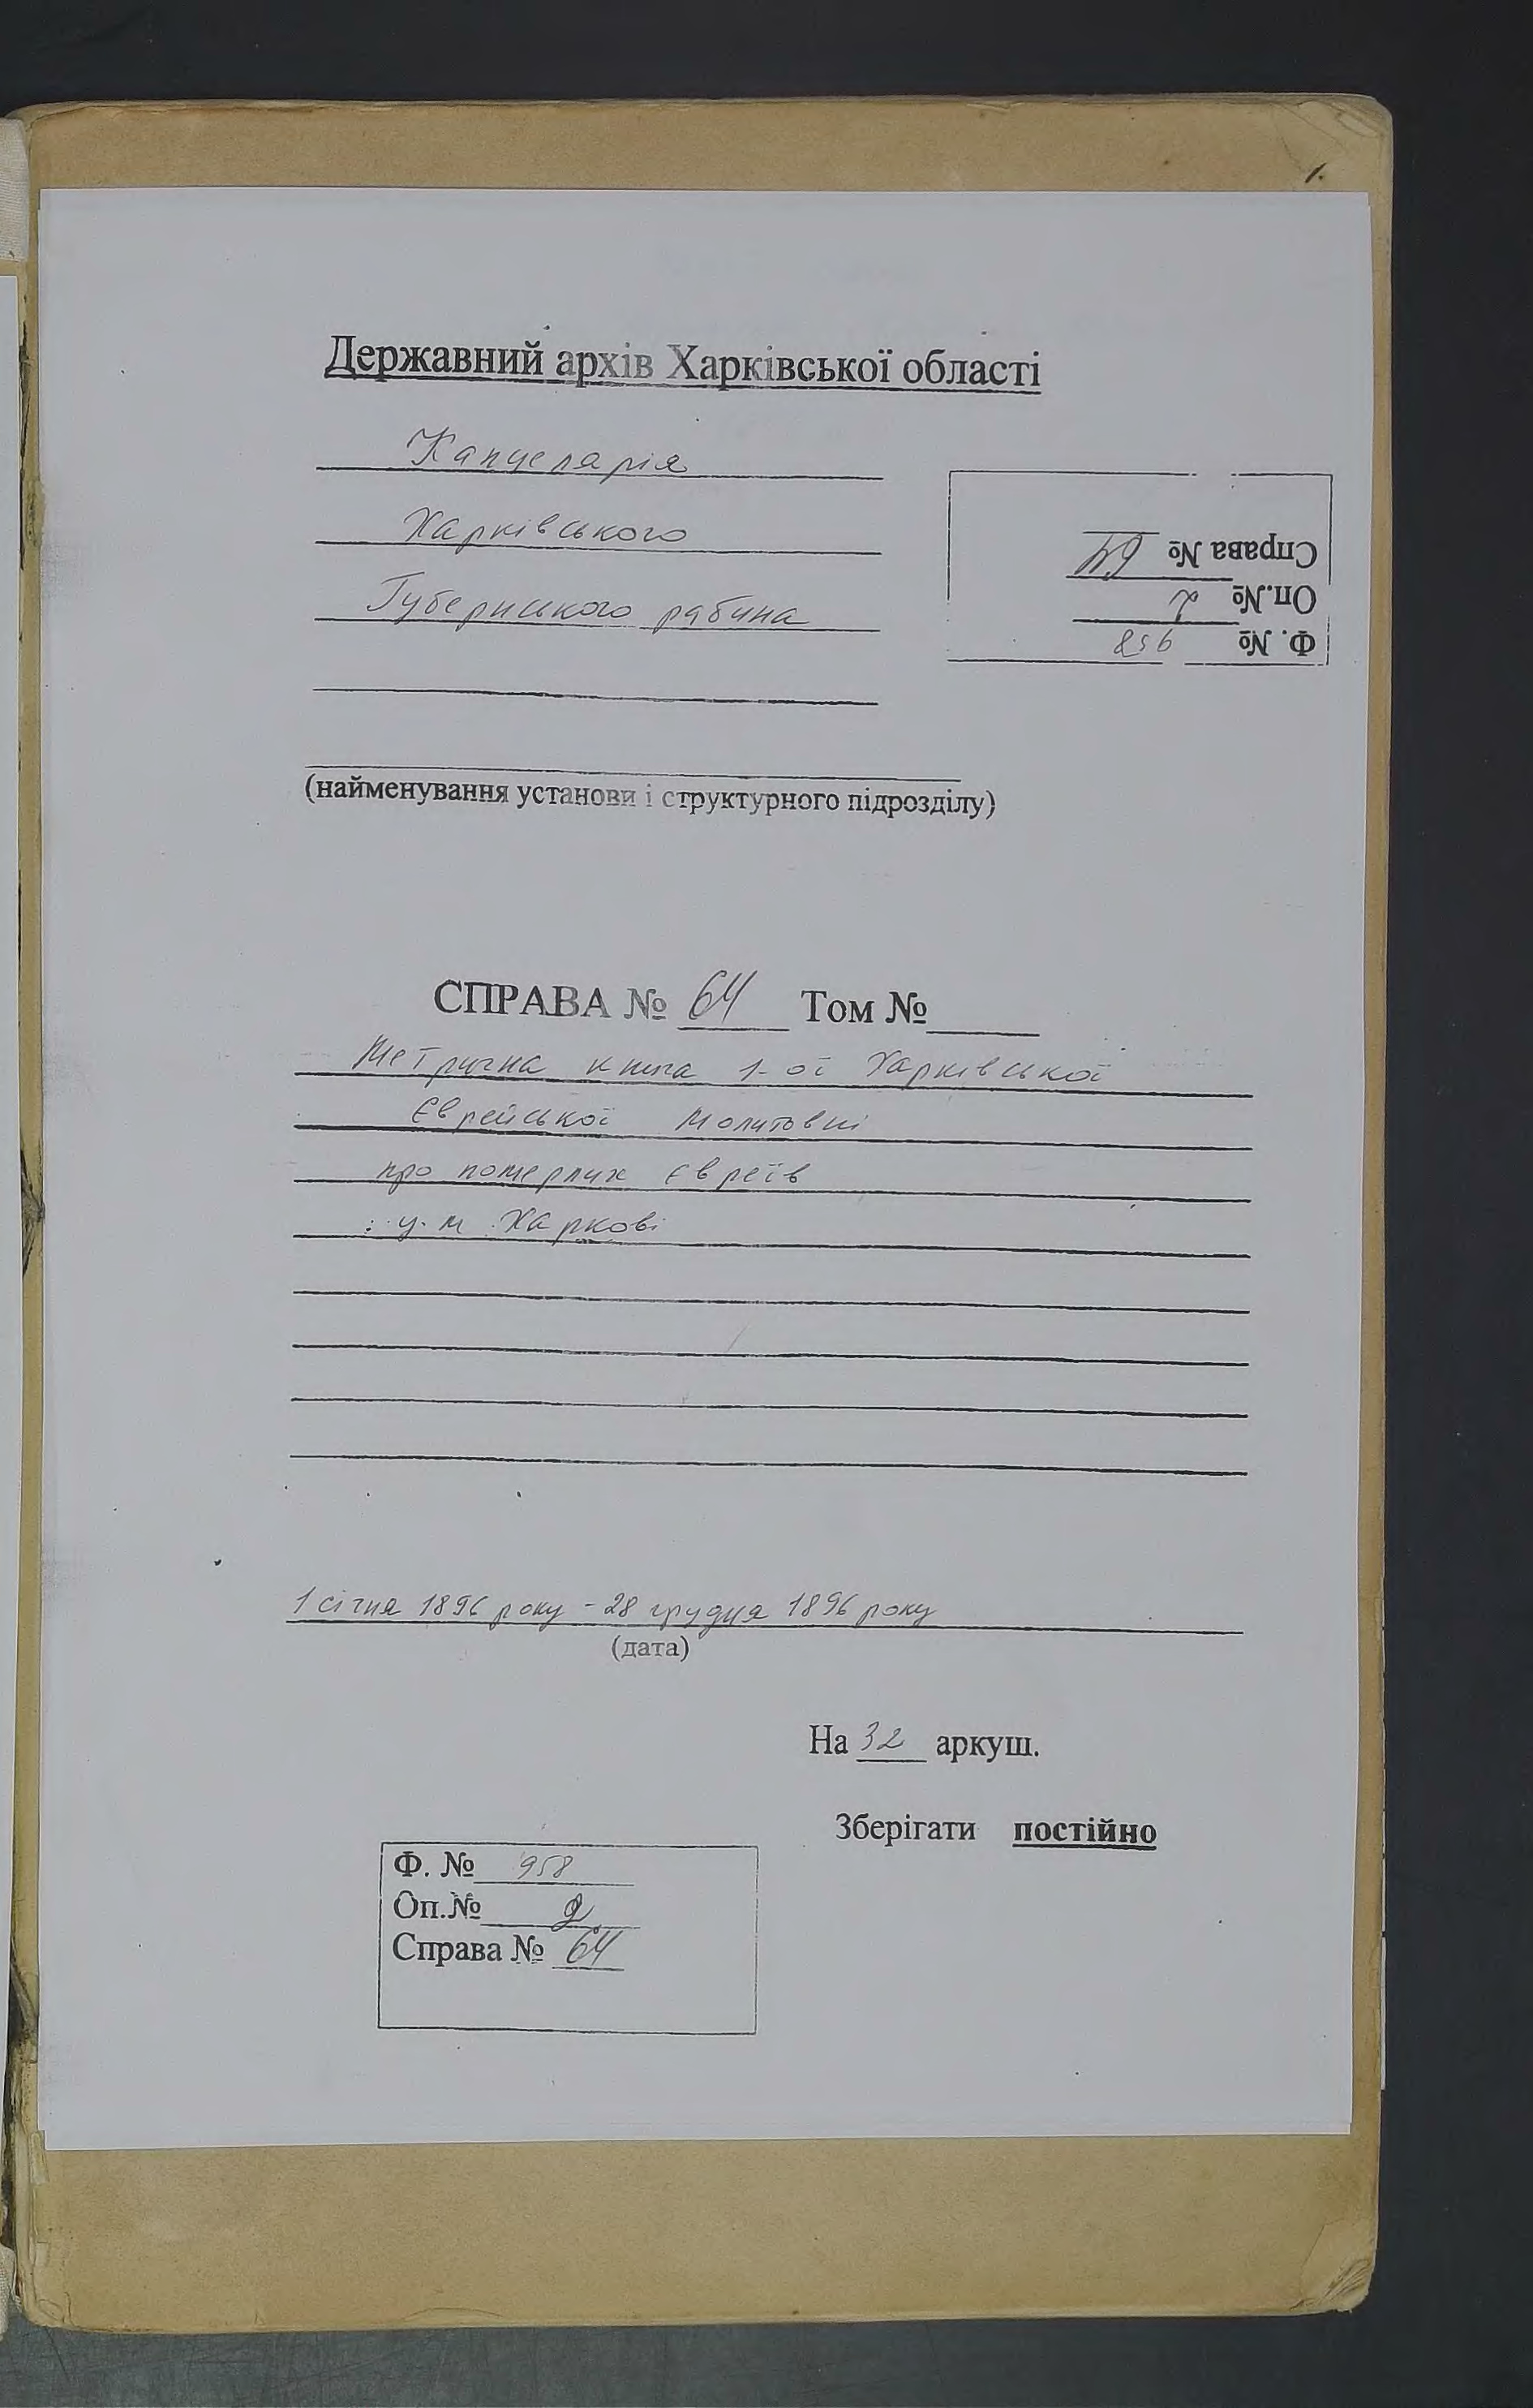 1.
Державний архів Харківської області
Канцелярія
Харківського
Губернського рабина
Справа № 64
Оп.№ 2
Ф. № 958
(найменування установи і структурного підрозділу)
СПРАВА № 64 Том №
Метрична книга 1-ої Харківської
Єврейської Молитовні
про померлих Євреїв
у м. Харкові
1 січня 1896 року - 28 грудня 1896 року
(дата)
На 32 аркуш.
Зберігати постійно
Ф. № 958
Оп.№ 2
Справа № 64